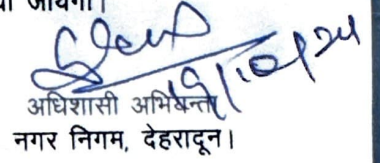 जायेगी।
19/10/24
अधिशासी अभियन्ता
नगर निगम, देहरादून।